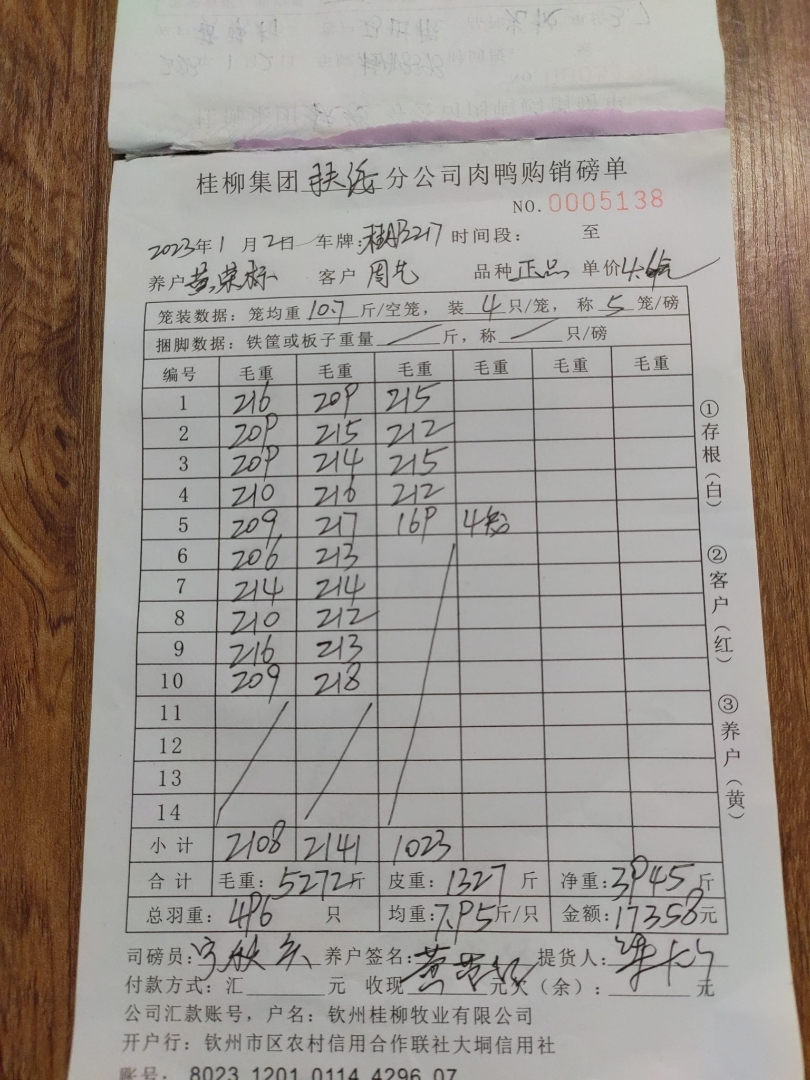 桂柳集团 扶绥 分公司肉鸭购销磅单
NO.0005138
2023年1月2日 车牌: 217 时间段: 至
养户 黄荣标 客户 周 品种 正品 单价 4.4元
笼装数据: 笼均重 10.7 斤/空笼, 装 4 只/笼, 称 5 笼/磅
捆脚数据: 铁筐或板子重量 / 斤, 称 / 只/磅
编号 毛重 毛重 毛重 毛重 毛重 毛重
1 216 209 215
2 209 215 212
3 209 214 215
4 210 216 212
5 209 217 169 4
6 206 213
7 214 214
8 210 212
9 216 213
10 209 218
11
12
13
14
小计 2108 2141 1023
合计 毛重: 5272斤 皮重: 1327 斤 净重: 3945斤
总羽重: 496 只 均重: 7.95斤/只 金额: 17358元
司磅员: 养户签名: 黄 提货人:
付款方式: 汇 元 收现 元欠(余): 元
公司汇款账号, 户名: 钦州桂柳牧业有限公司
开户行: 钦州市区农村信用合作联社大垌信用社
账号: 8023 1201 0114 4296 07
①存根(白)
②客户(红)
③养户(黄)